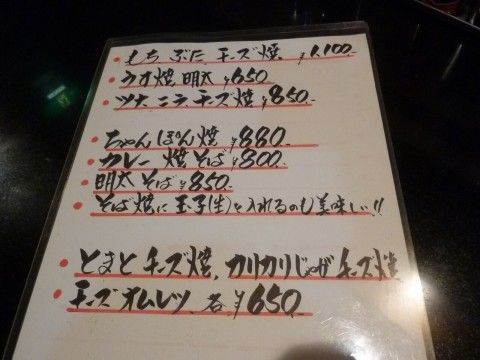 ・もち、ぶた、チーズ焼、¥1,100.-
・ラオ焼、明太 ¥650
・ツナ、ニラ、チーズ焼 ¥850.-
・ちゃんぽん焼 ¥880
・カレー焼そば ¥800.-
・明太そば ¥850.-
・そば焼に玉子(生)を入れるのも美味しい!!
・とまとチーズ焼、カリカリじゃがチーズ焼
・チーズオムレツ、各¥650.-